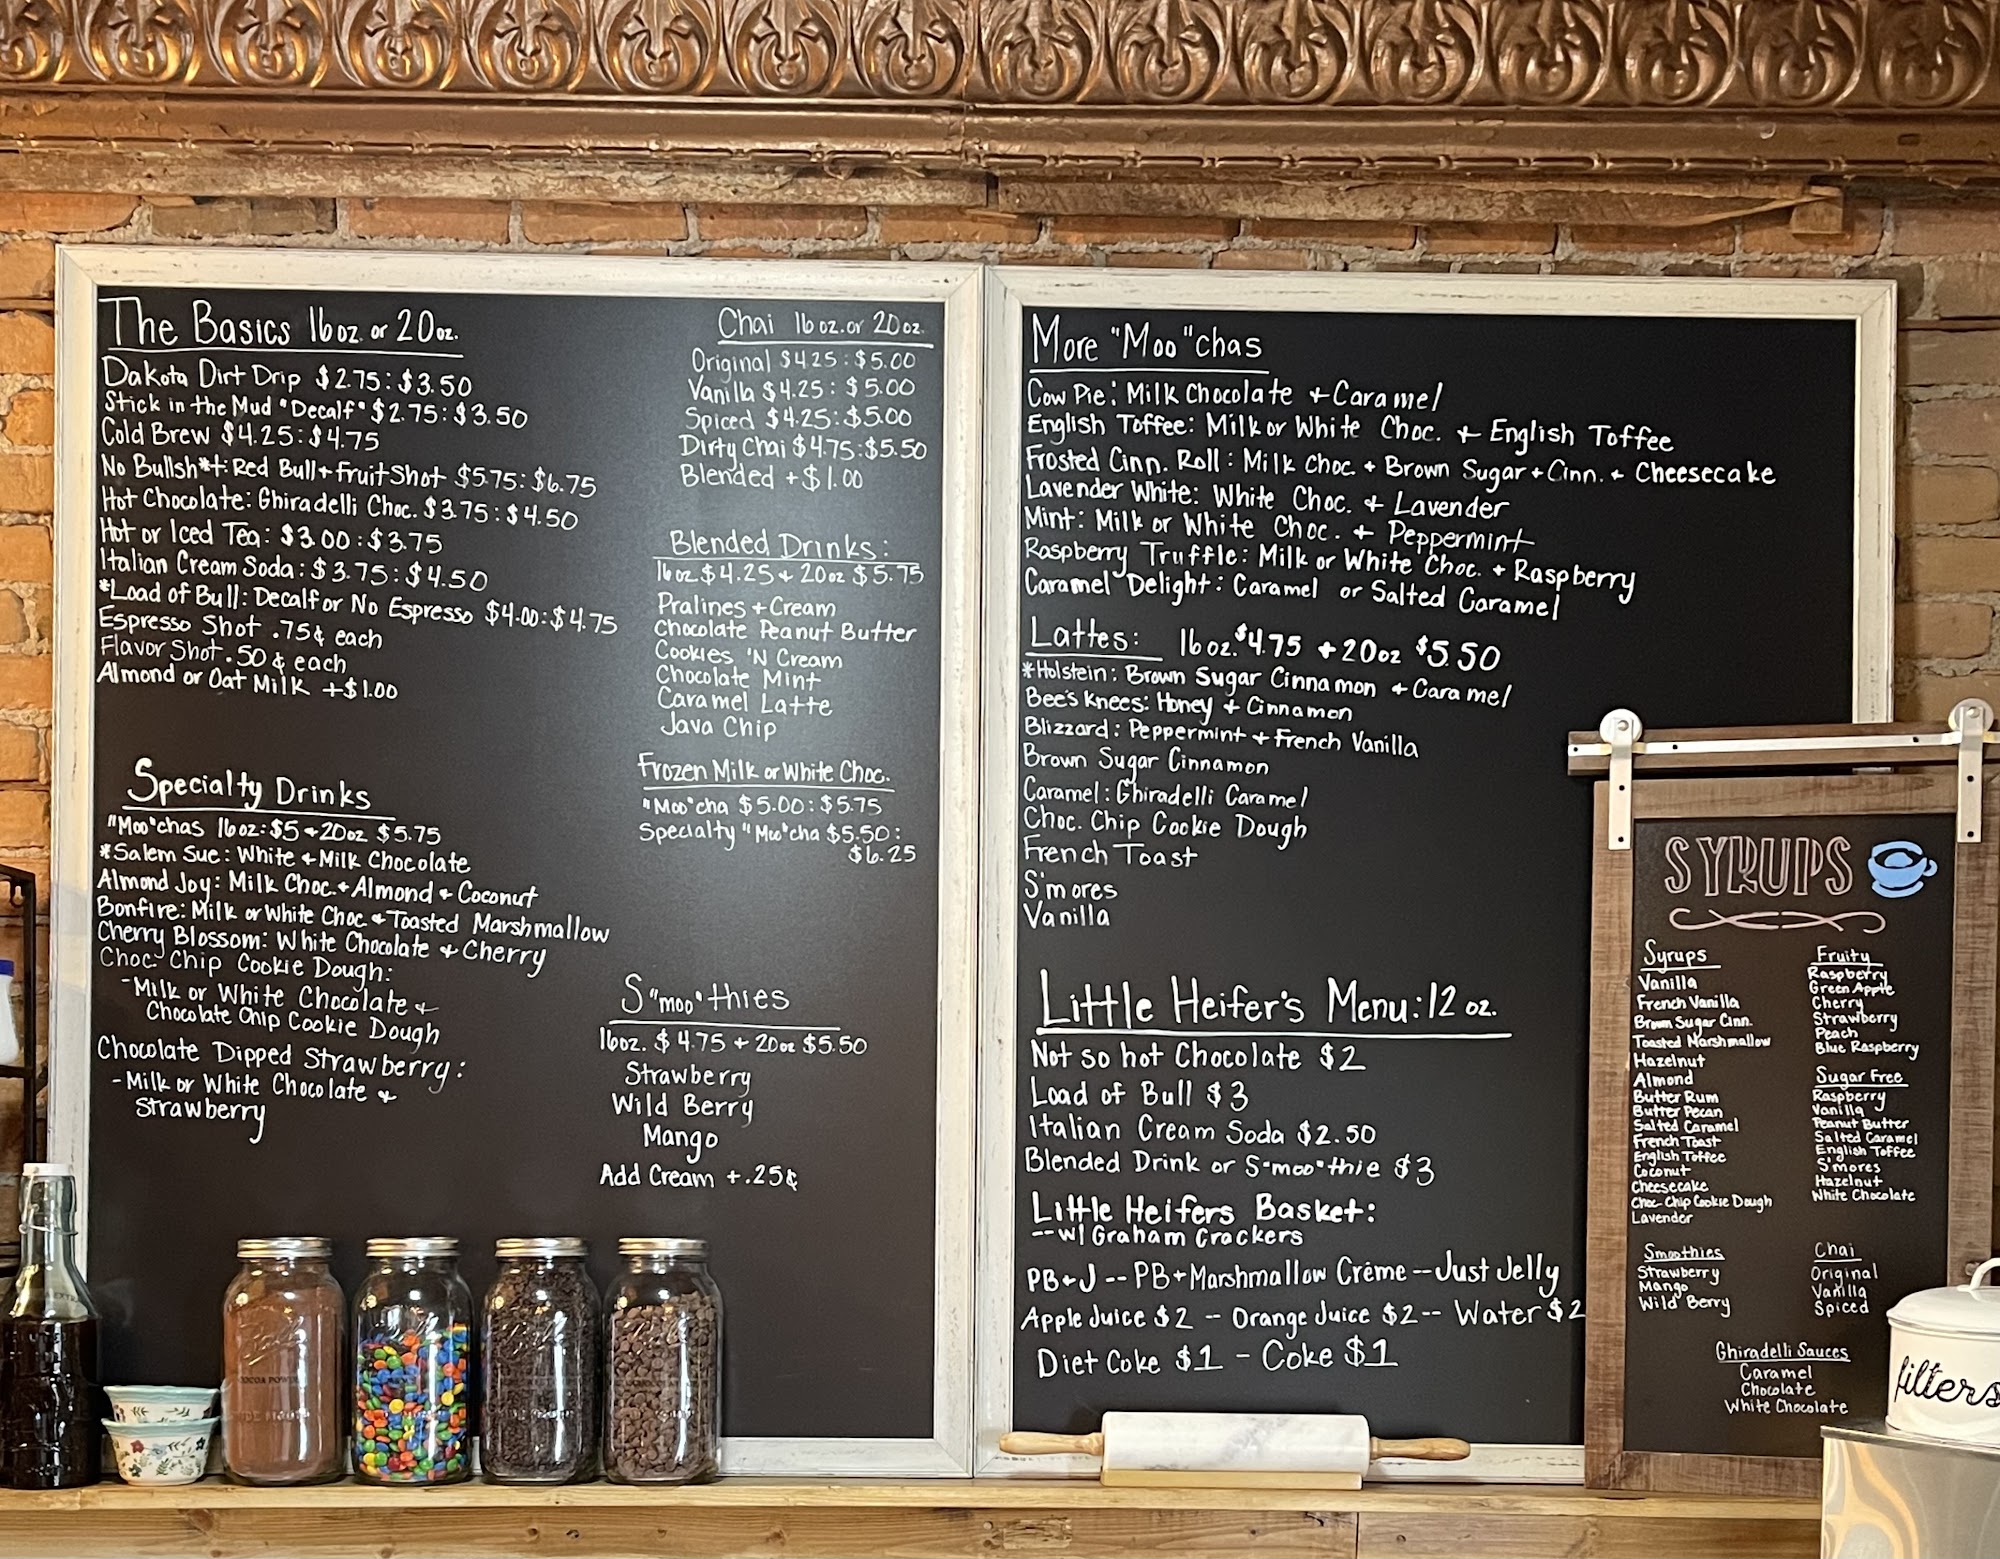 The Basics 16oz. or 20oz.
Dakota Dirt Drip $2.75:$3.50
Stick in the Mud "Decalf" $2.75:$3.50
Cold Brew $4.25:$4.75
No Bullsh*t: Red Bull + Fruit Shot $5.75:$6.75
Hot Chocolate: Ghiradelli Choc. $3.75:$4.50
Hot or Iced Tea: $3.00:$3.75
Italian Cream Soda: $3.75:$4.50
*Load of Bull: Decalf or No Espresso $4.00:$4.75
Espresso Shot .75¢ each
Flavor Shot .50¢ each
Almond or Oat Milk +$1.00
Specialty Drinks
"Moo"chas 16oz:$5 + 20oz $5.75
*Salem Sue: White + Milk Chocolate
Almond Joy: Milk Choc. + Almond + Coconut
Bonfire: Milk or White Choc + Toasted Marshmallow
Cherry Blossom: White Chocolate + Cherry
Choc. Chip Cookie Dough:
-Milk or White Chocolate +
Chocolate Chip Cookie Dough
Chocolate Dipped Strawberry:
-Milk or White Chocolate +
Strawberry
Chai 16oz. or 20oz.
Original $4.25:$5.00
Vanilla $4.25:$5.00
Spiced $4.25:$5.00
Dirty Chai $4.75:$5.50
Blended +$1.00
Blended Drinks:
16oz $4.25 + 20oz $5.75
Pralines + Cream
Chocolate Peanut Butter
Cookies 'N Cream
Chocolate Mint
Caramel Latte
Java Chip
Frozen Milk or White Choc.
"Moo"cha $5.00:$5.75
Specialty "Moo"cha $5.50:
$6.25
S"moo"thies
16oz. $4.75 + 20oz $5.50
Strawberry
Wild Berry
Mango
Add Cream +.25¢
More "Moo"chas
Cow Pie: Milk Chocolate + Caramel
English Toffee: Milk or White Choc. + English Toffee
Frosted Cinn. Roll: Milk Choc. + Brown Sugar + Cinn. + Cheesecake
Lavender White: White Choc. + Lavender
Mint: Milk or White Choc. + Peppermint
Raspberry Truffle: Milk or White Choc. + Raspberry
Caramel Delight: Caramel or Salted Caramel
Lattes: 16oz. $4.75 + 20oz $5.50
*Holstein: Brown Sugar Cinnamon + Caramel
Bee's Knees: Honey + Cinnamon
Blizzard: Peppermint + French Vanilla
Brown Sugar Cinnamon
Caramel: Ghiradelli Caramel
Choc. Chip Cookie Dough
French Toast
S'mores
Vanilla
Little Heifer's Menu: 12 oz.
Not so hot Chocolate $2
Load of Bull $3
Italian Cream Soda $2.50
Blended Drink or S"moo"thie $3
Little Heifers Basket:
--w/ Graham Crackers
PB+J -- PB+Marshmallow Créme -- Just Jelly
Apple Juice $2 -- Orange Juice $2 -- Water $2
Diet Coke $1 - Coke $1
SYRUPS
Syrups
Vanilla
French Vanilla
Brown Sugar Cinn.
Toasted Marshmallow
Hazelnut
Almond
Butter Rum
Butter Pecan
Salted Caramel
French Toast
English Toffee
Coconut
Cheesecake
Choc-Chip Cookie Dough
Lavender
Fruity
Raspberry
Green Apple
Cherry
Strawberry
Peach
Blue Raspberry
Sugar Free
Raspberry
Vanilla
Peanut Butter
Salted Caramel
English Toffee
S'mores
Hazelnut
White Chocolate
Smoothies
Strawberry
Mango
Wild Berry
Chai
Original
Vanilla
Spiced
Ghiradelli Sauces
Caramel
Chocolate
White Chocolate
filters
COCOA POWDER